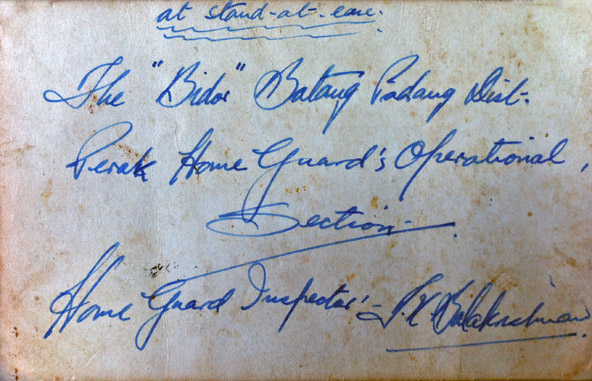 at stand-at-ease.
The "Bidor" Batang Padang Dist.
Perak Home Guard's Operational,
Section.
Home Guard Inspector:- T. K. Balakrishnan.